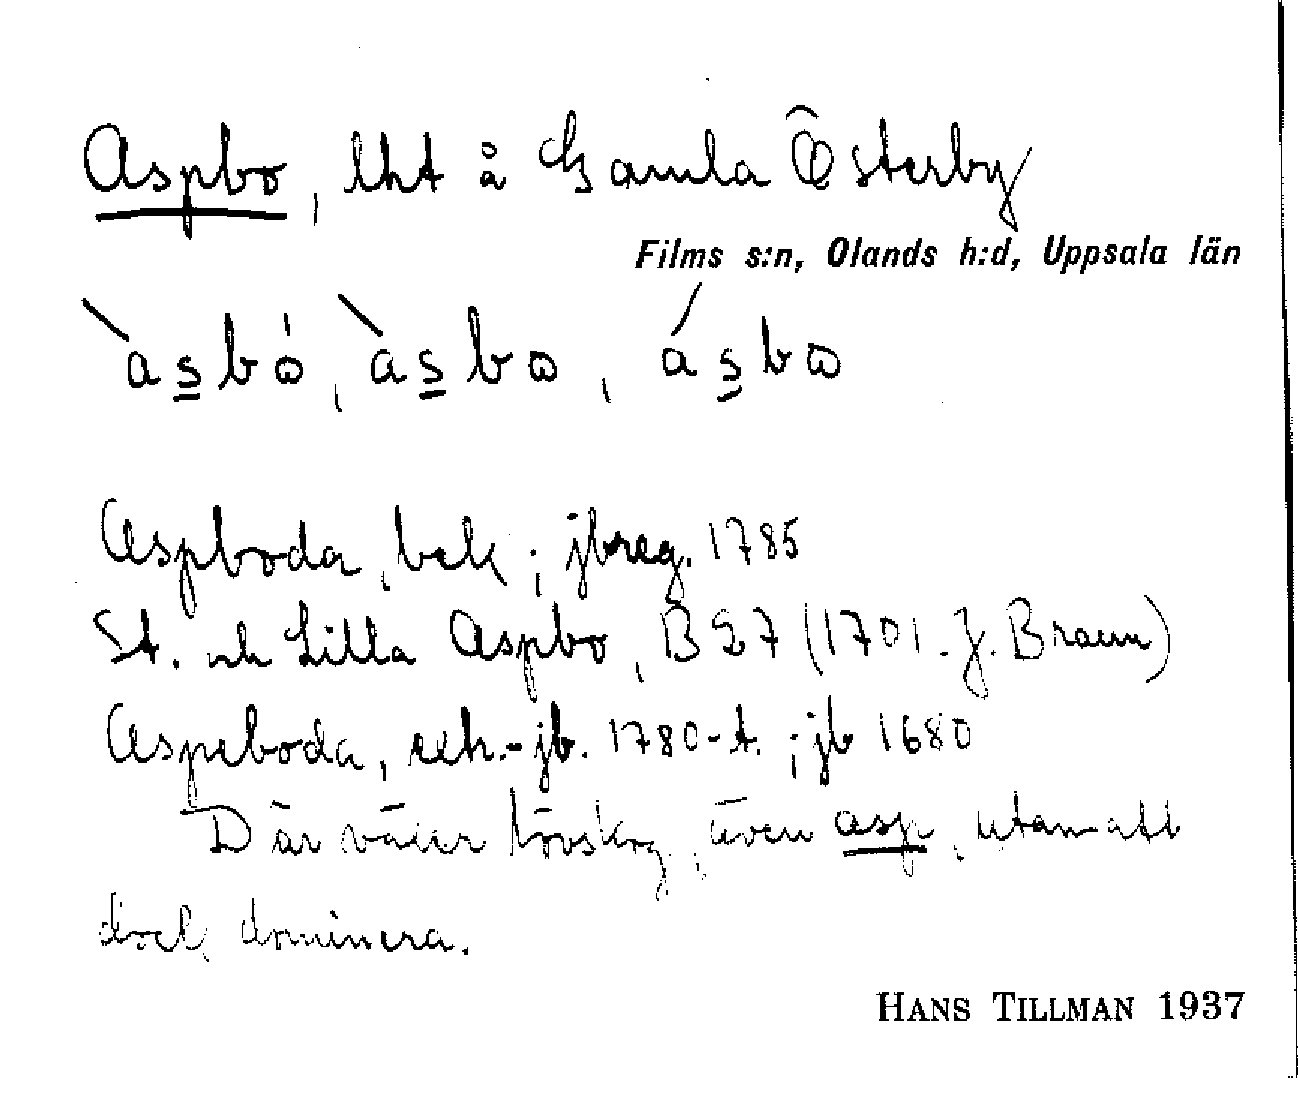 Aspbo, lht å Gamla Österby
Films s:n, Olands h:d, Uppsala län
àsbó, àsbo, ásbo
Aspboda, bek; jbreg. 1785
St. och Lilla Aspbo, B 27 (1701. J. Braun)
Aspeboda, eck.-jb. 1780-t.; jb 1680
Där växer lövskog, även asp, utan att
dock dominera.
HANS TILLMAN 1937